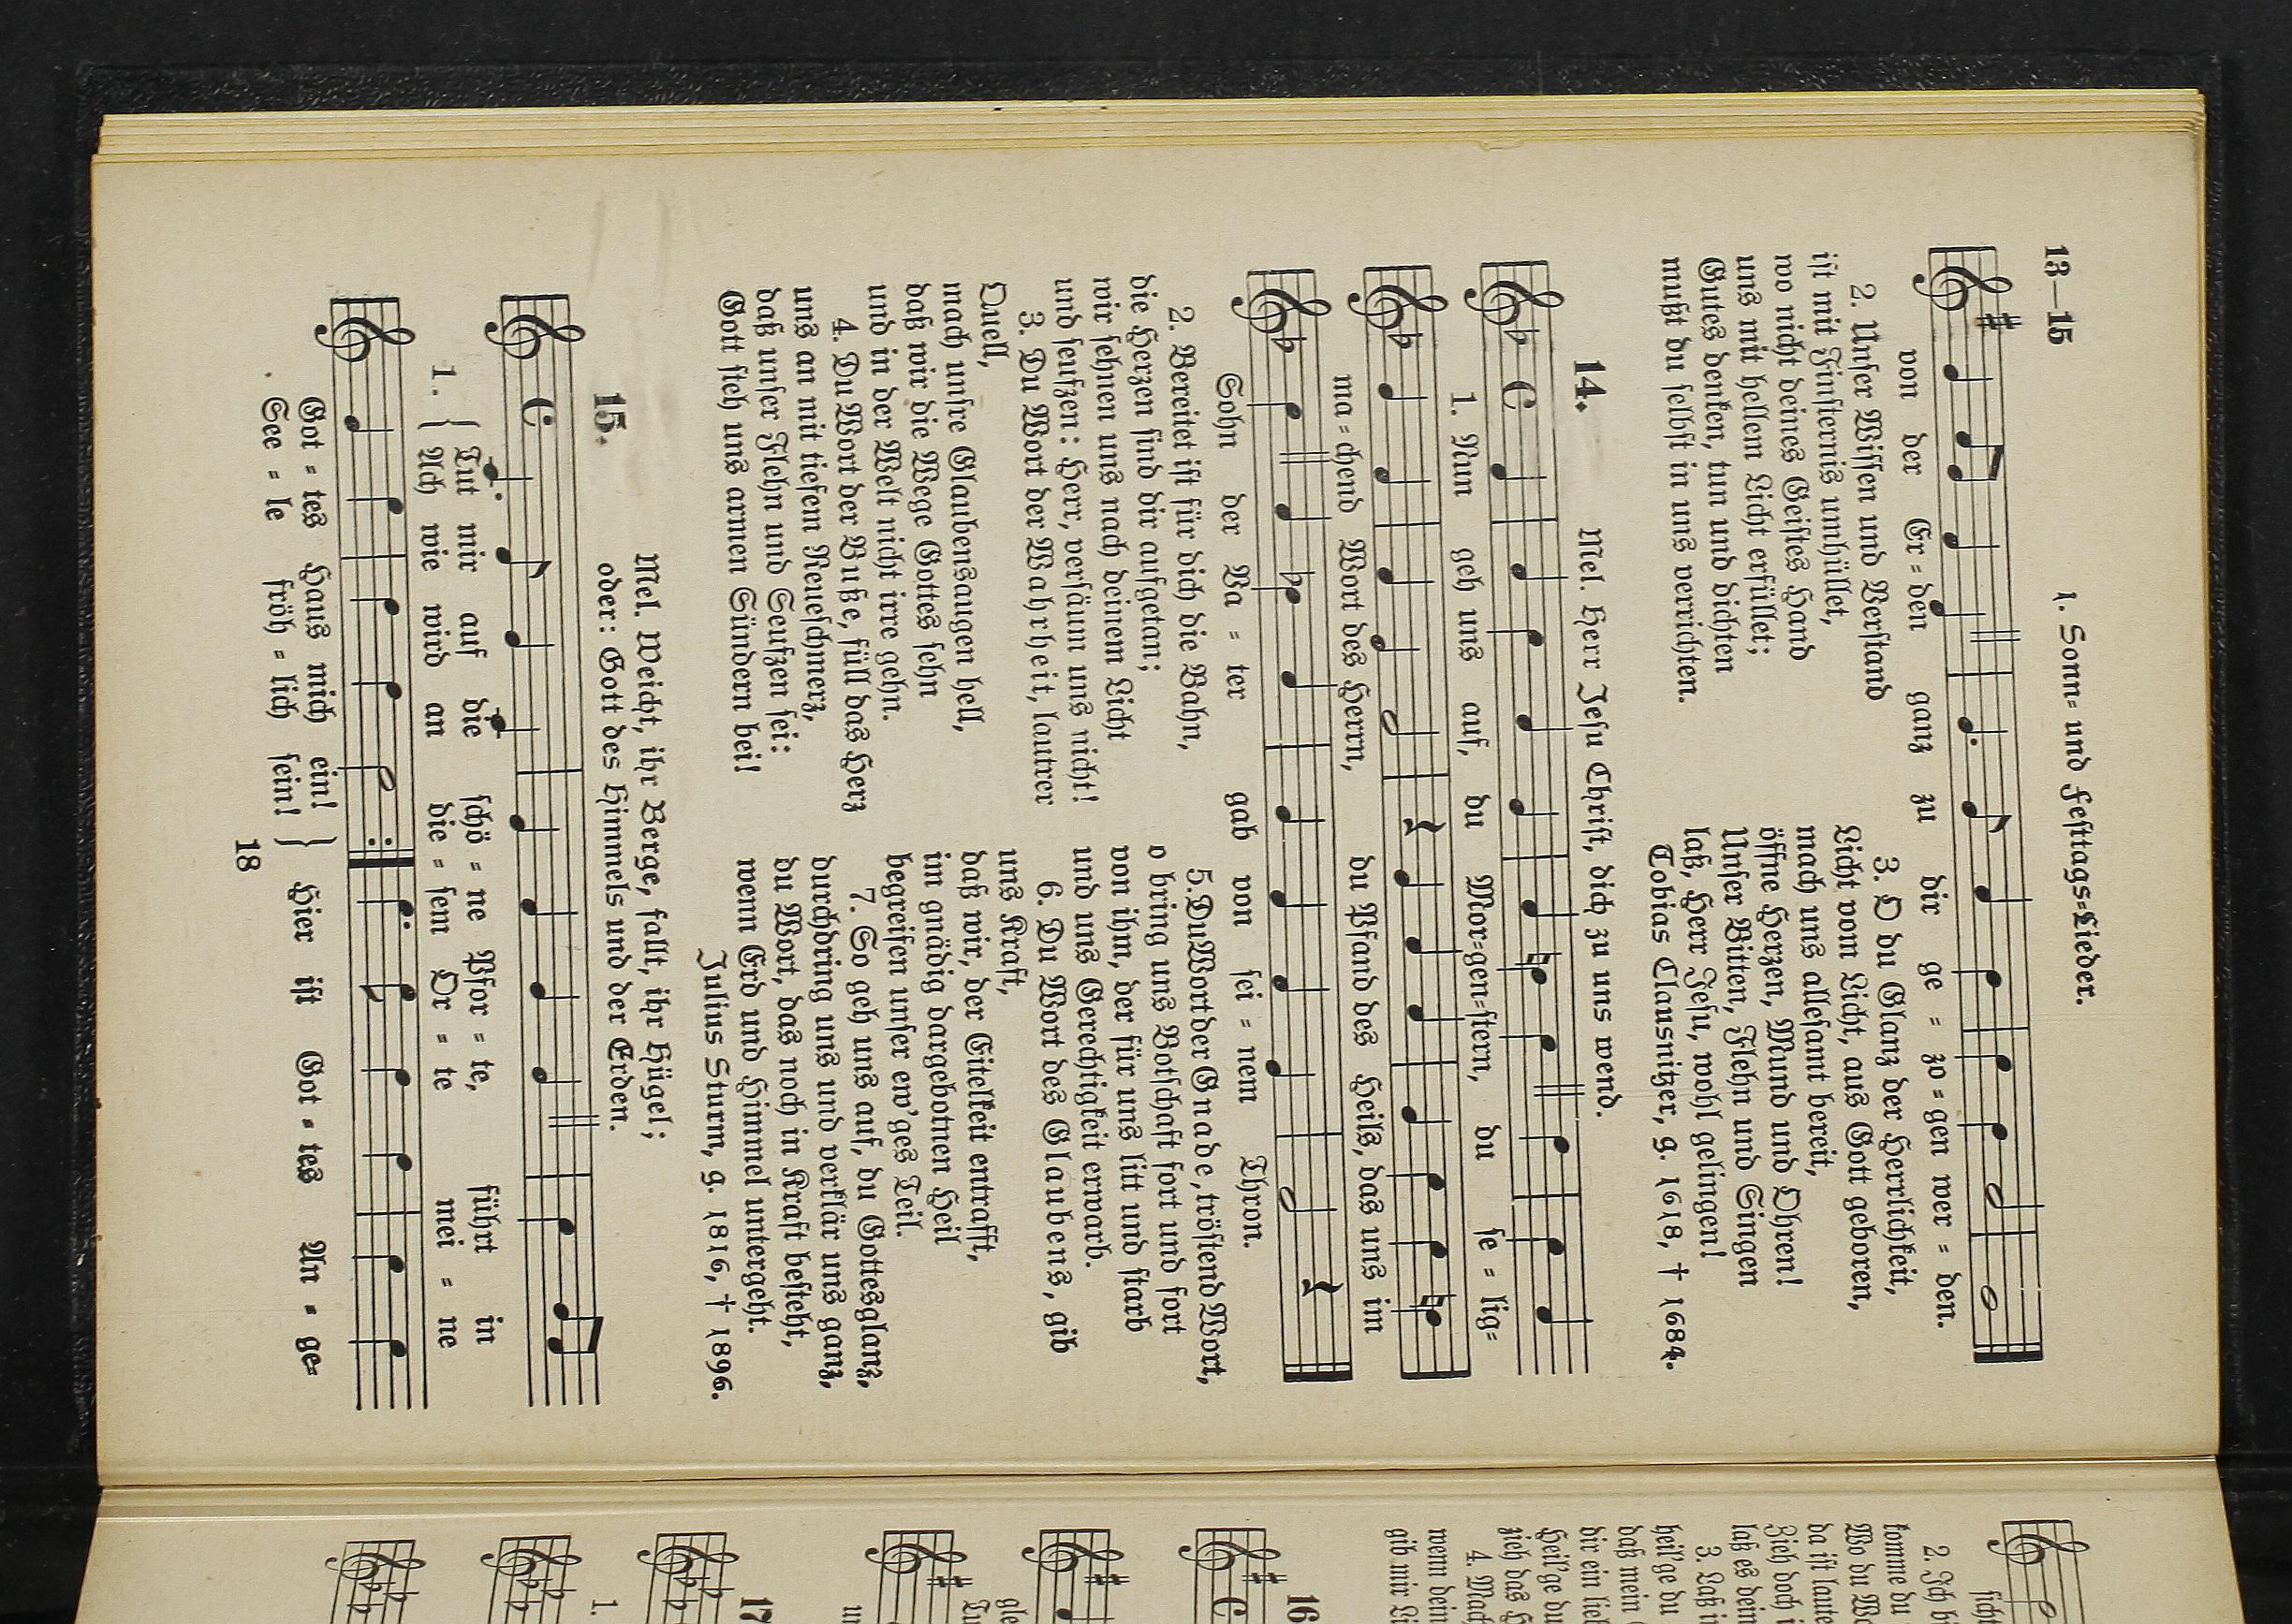 13—15
1. Sonn- und Festtags-Lieder.
von der Er-den ganz zu dir ge-zo-gen wer-den.
2. Unser Wissen und Verstand
ist mit Finsternis umhüllet,
wo nicht deines Geistes Hand
uns mit hellem Licht erfüllet;
Gutes denken, tun und dichten
mußt du selbst in uns verrichten.
3. O du Glanz der Herrlichkeit,
Licht vom Licht, aus Gott geboren,
mach uns allesamt bereit,
öffne Herzen, Mund und Ohren!
Unser Bitten, Flehn und Singen
laß, Herr Jesu, wohl gelingen!
Tobias Clausnitzer, g. 1618, † 1684.
14. Mel. Herr Jesu Christ, dich zu uns wend.
1. Nun geh uns auf, du Mor-gen-stern, du se-lig-
ma-chend Wort des Herrn, du Pfand des Heils, das uns im
Sohn der Va-ter gab von sei-nem Thron.
2. Bereitet ist für dich die Bahn,
die Herzen sind dir aufgetan;
wir sehnen uns nach deinem Licht
und seufzen: Herr, versäum uns nicht!
3. Du Wort der Wahrheit, lautrer
Quell,
mach unsre Glaubensaugen hell,
daß wir die Wege Gottes sehn
und in der Welt nicht irre gehn.
4. Du Wort der Buße, füll das Herz
uns an mit tiefem Reueschmerz,
daß unser Flehn und Seufzen sei:
Gott steh uns armen Sündern bei!
5. Du Wort der Gnade, tröstend Wort,
o bring uns Botschaft fort und fort
von ihm, der für uns litt und starb
und uns Gerechtigkeit erwarb.
6. Du Wort des Glaubens, gib
uns Kraft,
daß wir, der Eitelkeit entrafft,
im gnädig dargebotnen Heil
begreifen unser ew'ges Teil.
7. So geh uns auf, du Gottesglanz,
durchdring uns und verklär uns ganz,
du Wort, das noch in Kraft besteht,
wenn Erd und Himmel untergeht.
Julius Sturm, g. 1816, † 1896.
15. Mel. Weicht, ihr Berge, fallt, ihr Hügel;
oder: Gott des Himmels und der Erden.
1. { Tut mir auf die schö-ne Pfor-te, führt in
Ach wie wird an die-sem Or-te mei-ne
Got-tes Haus mich ein! } Hier ist Got-tes An-ge-
See-le fröh-lich sein!
18
2. Ich
komme du
Wo du W
da ist laute
Zieh doch i
laß es dein
3. Laß i
heil'ge du
daß mein
dir ein lieb
Heil'ge du
zieh das H
4. Mach
wenn dein
gib mir Li
16
17
1.